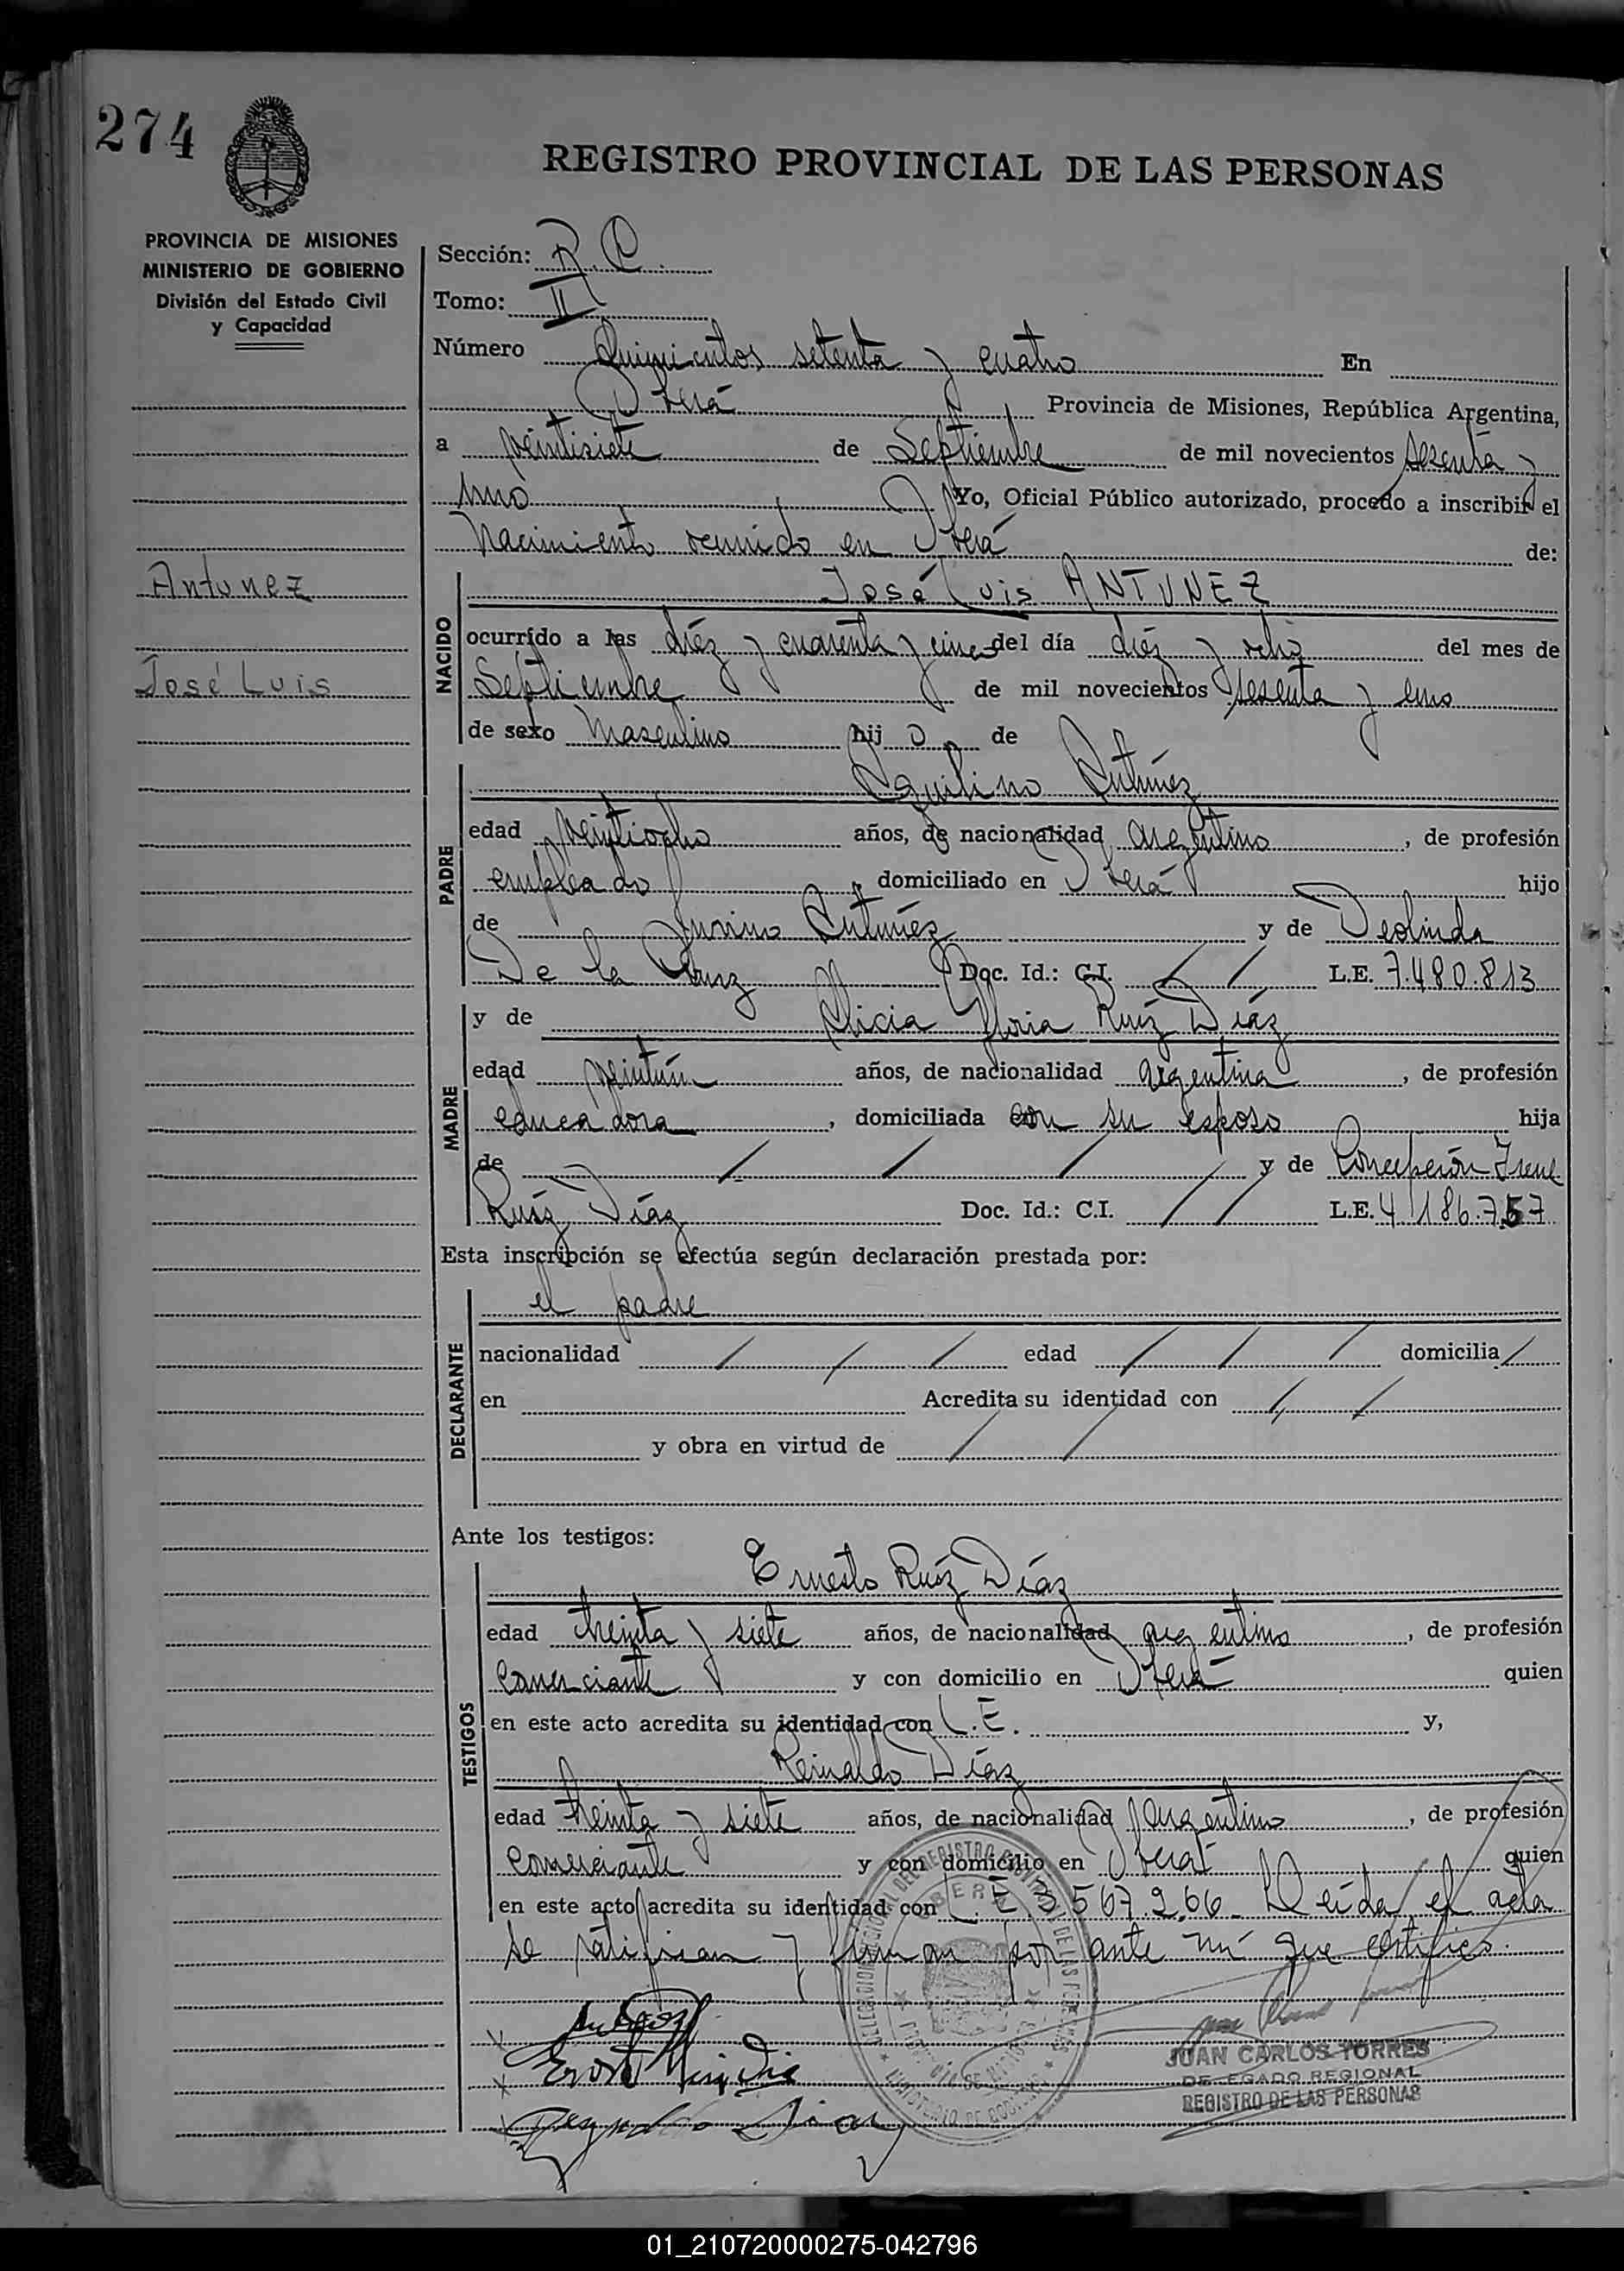 274
REGISTRO PROVINCIAL DE LAS PERSONAS
PROVINCIA DE MISIONES
MINISTERIO DE GOBIERNO
División del Estado Civil
y Capacidad
Antunez
José Luis
Sección: R. C.
Tomo: II
Número Quinientos setenta y cuatro En
Oberá Provincia de Misiones, República Argentina,
a veintisiete de Septiembre de mil novecientos sesenta y
uno Yo, Oficial Público autorizado, procedo a inscribir el
Nacimiento ocurrido en Oberá de:
NACIDO
José Luis ANTUNEZ
ocurrido a las diéz y cuarenta y cinco del día diéz y ocho del mes de
Septiembre de mil novecientos sesenta y uno
de sexo Masculino hij o de
PADRE
Aquilino Antúnez
edad veintiocho años, de nacionalidad argentino, de profesión
empleado domiciliado en Oberá hijo
de Antúnez y de Deolinda
De la Cruz Doc. Id.: C.I. / / L.E. 7.480.813
MADRE
y de Alicia Gloria Ruíz Díaz
edad veintún años, de nacionalidad argentina, de profesión
educadora, domiciliada con su esposo hija
de / / / / y de Concepción Irene
Ruíz Díaz Doc. Id.: C.I. / / L.E. 4.186.757
Esta inscripción se efectúa según declaración prestada por:
DECLARANTE
el padre
nacionalidad / / / edad / / / domicilia /
en Acredita su identidad con / /
y obra en virtud de / /
Ante los testigos:
TESTIGOS
Ernesto Ruíz Díaz
edad treinta y siete años, de nacionalidad argentino, de profesión
Comerciante y con domicilio en Oberá quien
en este acto acredita su identidad con L.E. y,
Reinaldo Díaz
edad treinta y siete años, de nacionalidad argentino, de profesión
Comerciante y con domicilio en Oberá quien
en este acto acredita su identidad con L.E 3.567.266 Leída el acta
se ratifican y firman por ante mí que certifico.
JUAN CARLOS TORRES
DELEGADO REGIONAL
REGISTRO DE LAS PERSONAS
01_210720000275-042796